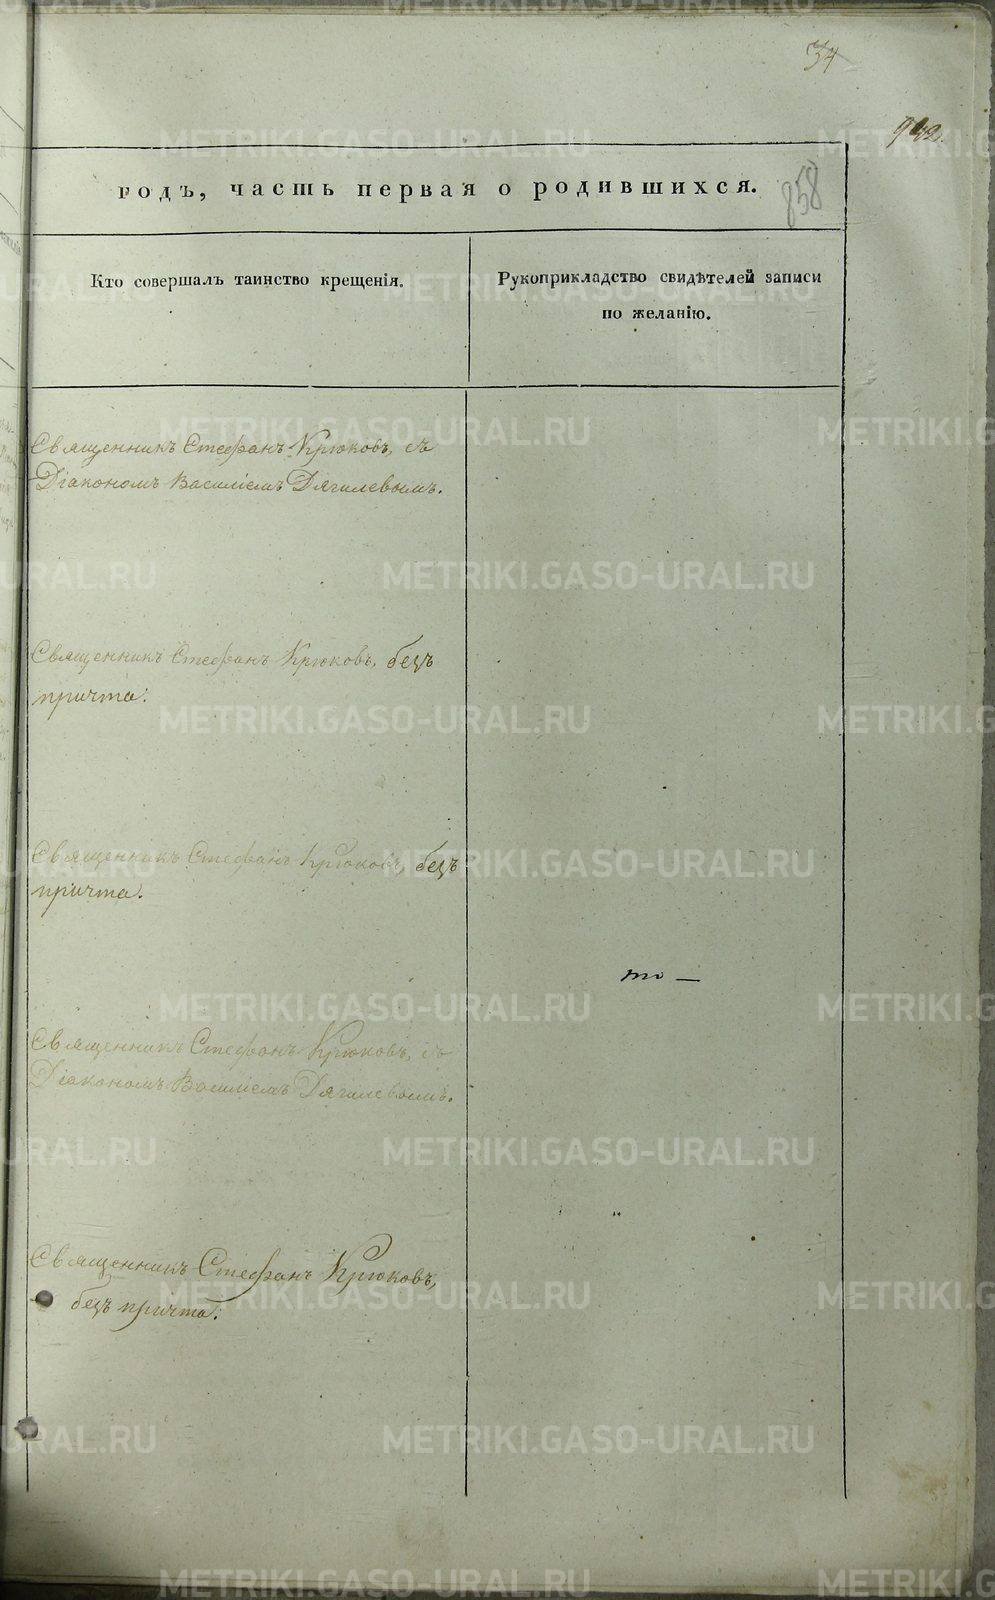 34
942.
858
годъ, часть первая о родившихся.
Кто совершалъ таинство крещенія.
Рукоприкладство свидѣтелей записи
по желанію.
Священникъ Стефанъ Крюковъ, съ
Діакономъ Василіемъ Дягилевымъ.
Священникъ Стефанъ Крюковъ, безъ
причта.
Священникъ Стефанъ Крюковъ, безъ
причта.
Священникъ Стефанъ Крюковъ, съ
Діакономъ Василіемъ Дягилевымъ.
Священникъ Стефанъ Крюковъ,
безъ причта.
METRIKI.GASO-URAL.RU